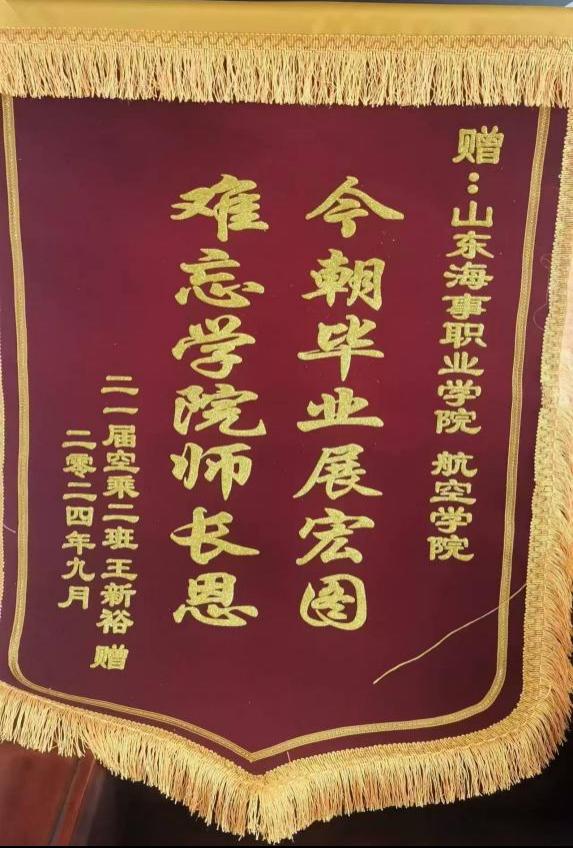 赠：山东海事职业学院 航空学院
今朝毕业展宏图
难忘学院师长恩
二一届空乘二班王新裕 赠
二零二四年九月